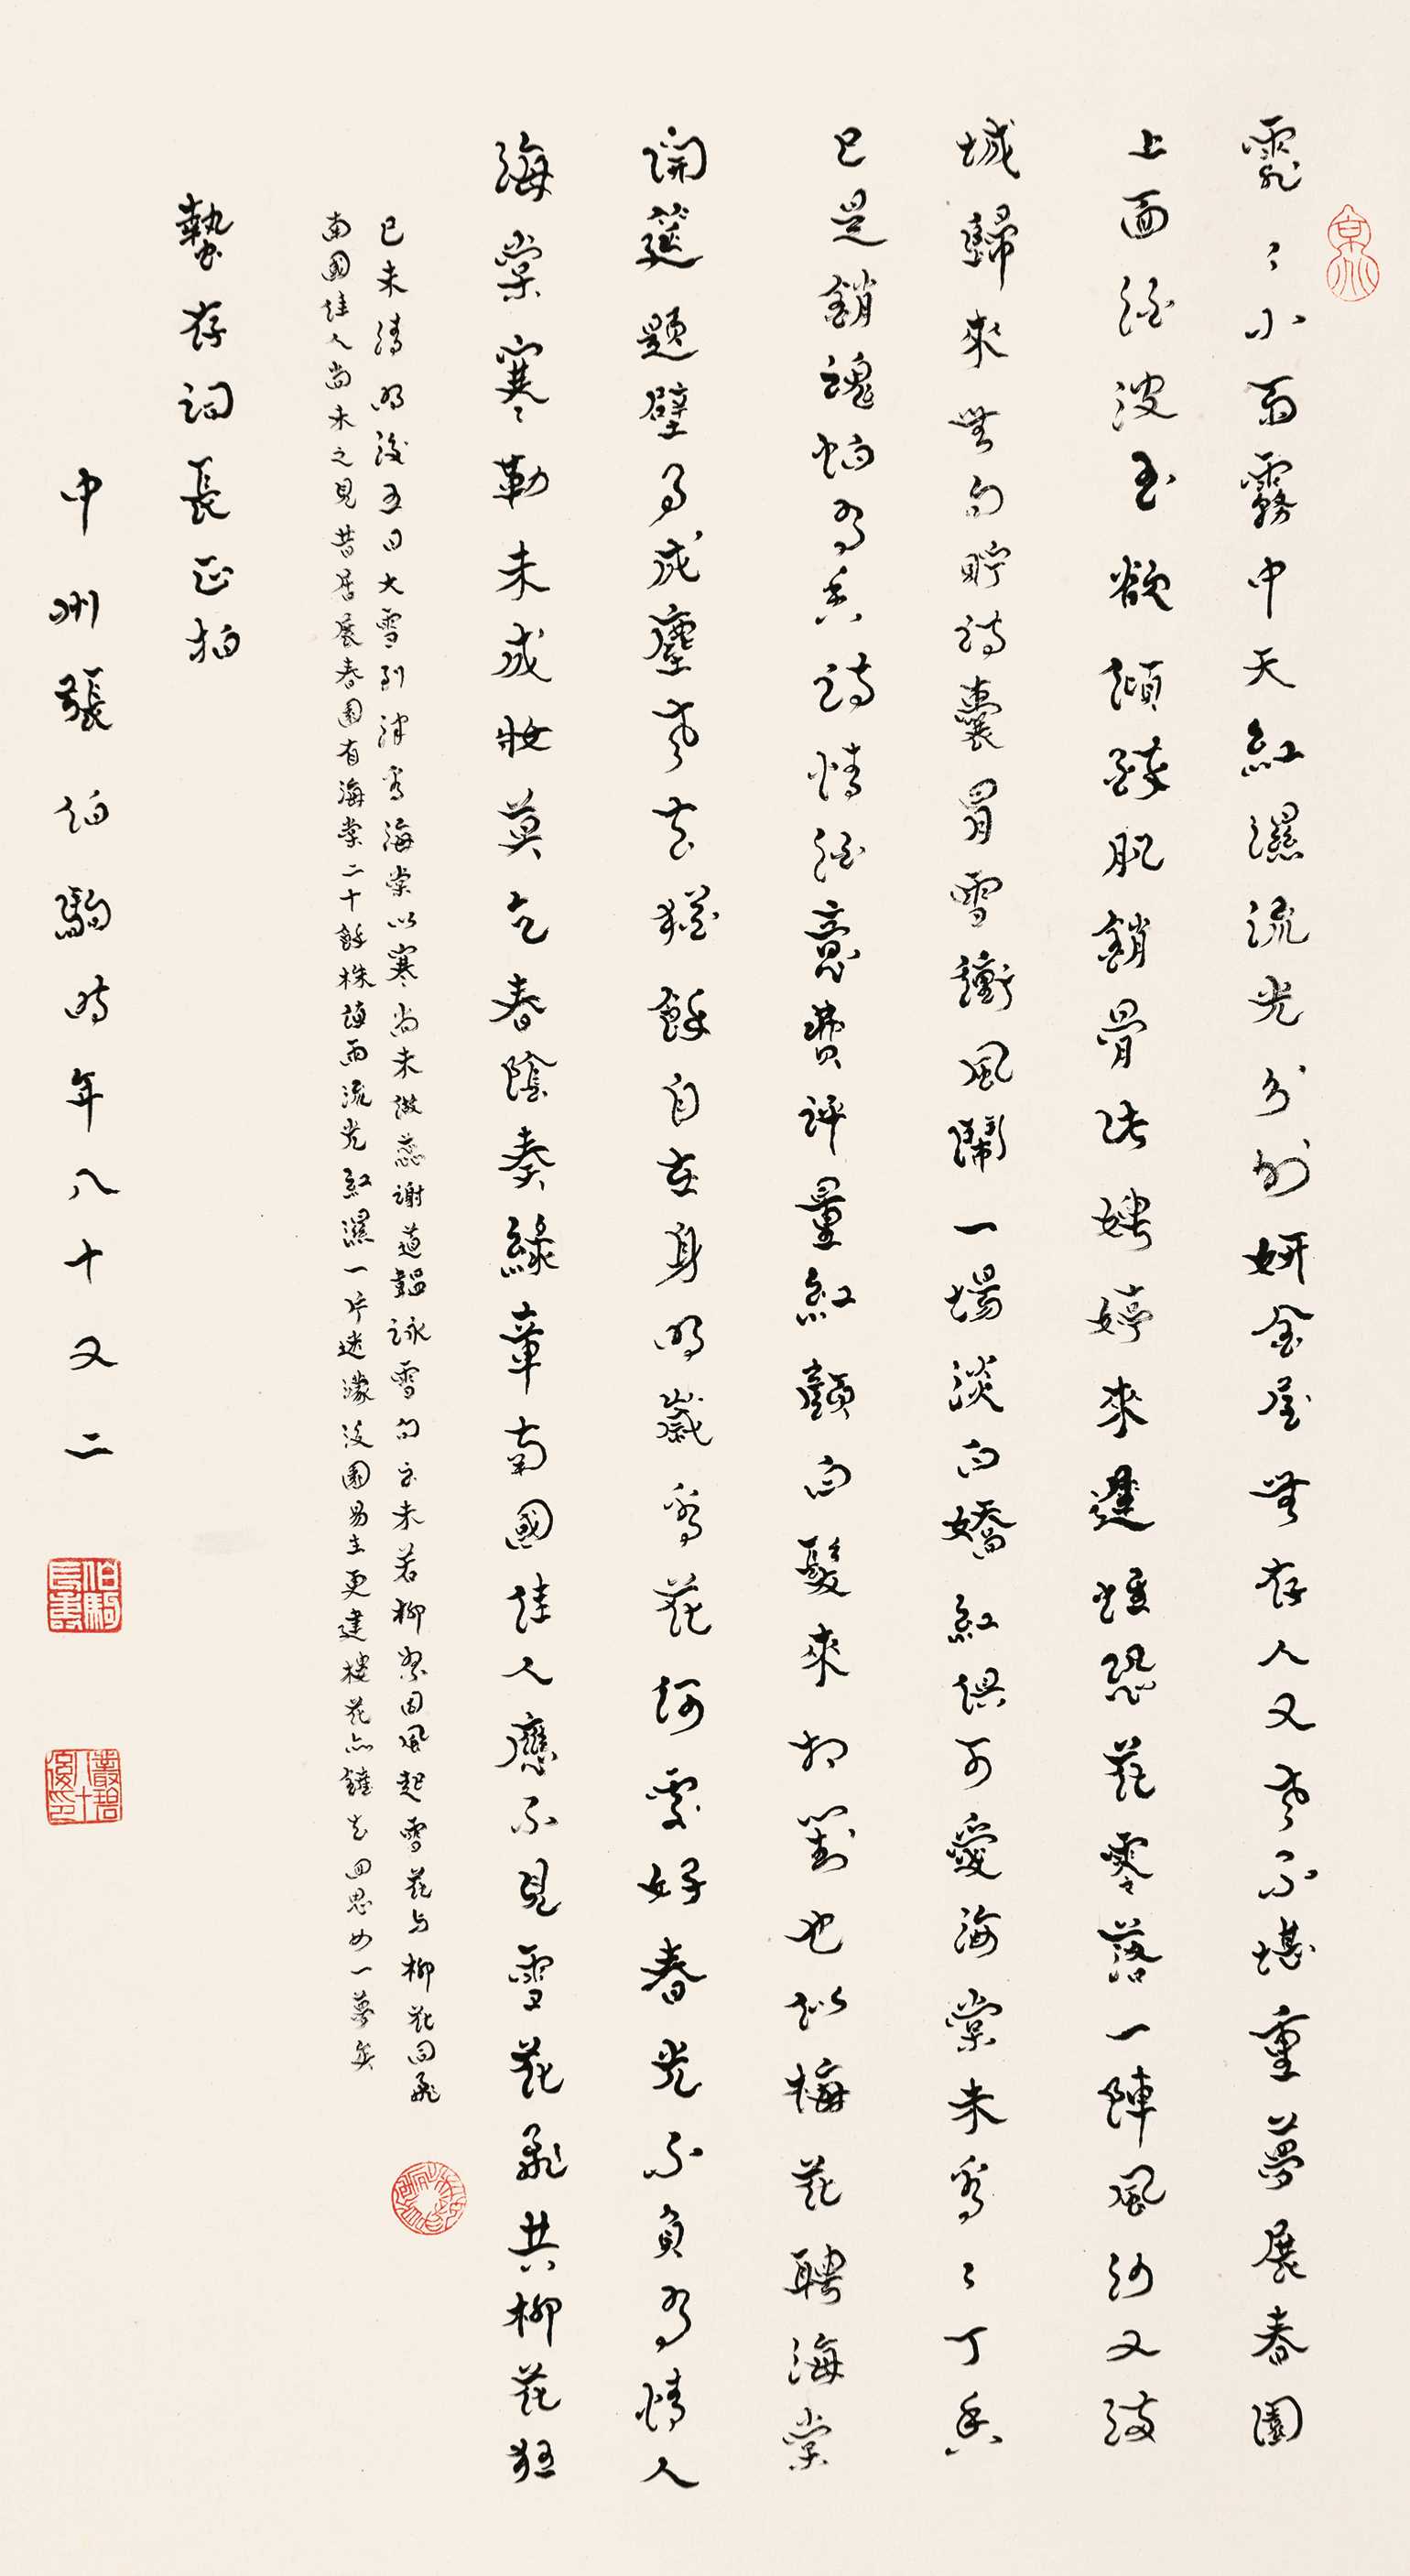 霏〻小雨霧中天紅濕流光分外妍金屋無存人又老不堪重夢展春園
上面經波玉欲傾餘肌銷骨決娉婷來遲煙恐花零落一陣風沙又
城歸來無句貯詩囊冒雪衝風鬧一場淡白嬌紅俱可愛海棠未看〻丁香
已是銷魂怕看香詩情經意費評量紅顏白髮來相對也似梅花聘海棠
開筵題壁事成塵老去猶餘自在身明歲看花何處好春光不負有情人
海棠寒勒未成妝莫乞春陰奏綠章南國佳人應不見雪花飛共柳花狂
己未清明後五日大雪到津看海棠以寒尚未微蕊謝道韞詠雪句云未若柳絮因風起雪花與柳花同飛
南國佳人尚未之見昔居展春園有海棠二十餘株值雨流光紅濕一片迷濛後園易主更建樓花亦鏟去回思如一夢矣
蟄存詞長正拍
中州張伯駒時年八十又二